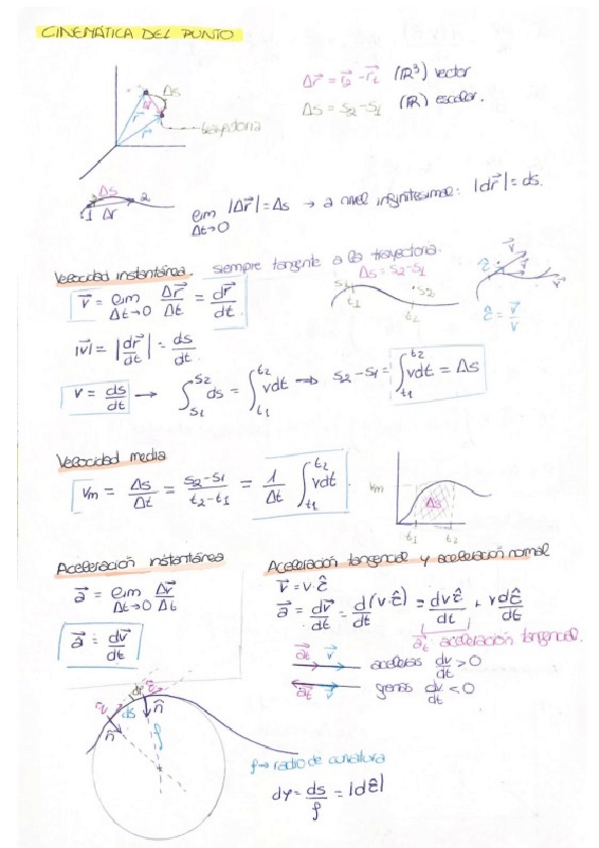 CINEMÁTICA DEL PUNTO
Δs
Δr⃗ = r⃗₂ - r⃗₁ (ℝ³) vector
Δs = s₂ - s₁ (ℝ) escalar.
trayectoria
Δs
1 Δr 2
lim |Δr⃗| = Δs → a nivel infinitesimal: |dr⃗| = ds.
Δt→0
Velocidad instantánea. siempre tangente a la trayectoria.
Δs = s₂-s₁
s₁ t₁ s₂ t₂
v⃗ = lim Δt→0 Δr⃗/Δt = dr⃗/dt
ε̂ = v⃗/v
|v⃗| = |dr⃗/dt| = ds/dt.
v = ds/dt → ∫s₁^s₂ ds = ∫t₁^t₂ vdt ⇒ s₂-s₁ = ∫t₁^t₂ vdt = Δs
Velocidad media
vm = Δs/Δt = s₂-s₁/t₂-t₁ = 1/Δt ∫t₁^t₂ vdt
vm Δs
t₁ t₂
Aceleración instantánea
a⃗ = lim Δt→0 Δv⃗/Δt
a⃗ = dv⃗/dt
Aceleración tangencial y aceleración normal
v⃗ = v·ε̂
a⃗ = dv⃗/dt = d(v·ε̂)/dt = dv ε̂/dt + v dε̂/dt
a⃗t: aceleración tangencial.
a⃗t v⃗ aceleras dv/dt > 0
a⃗t v⃗ dv/dt < 0
ds n̂ n̂ ρ
ρ → radio de curvatura
dφ = ds/ρ = |dε̂|